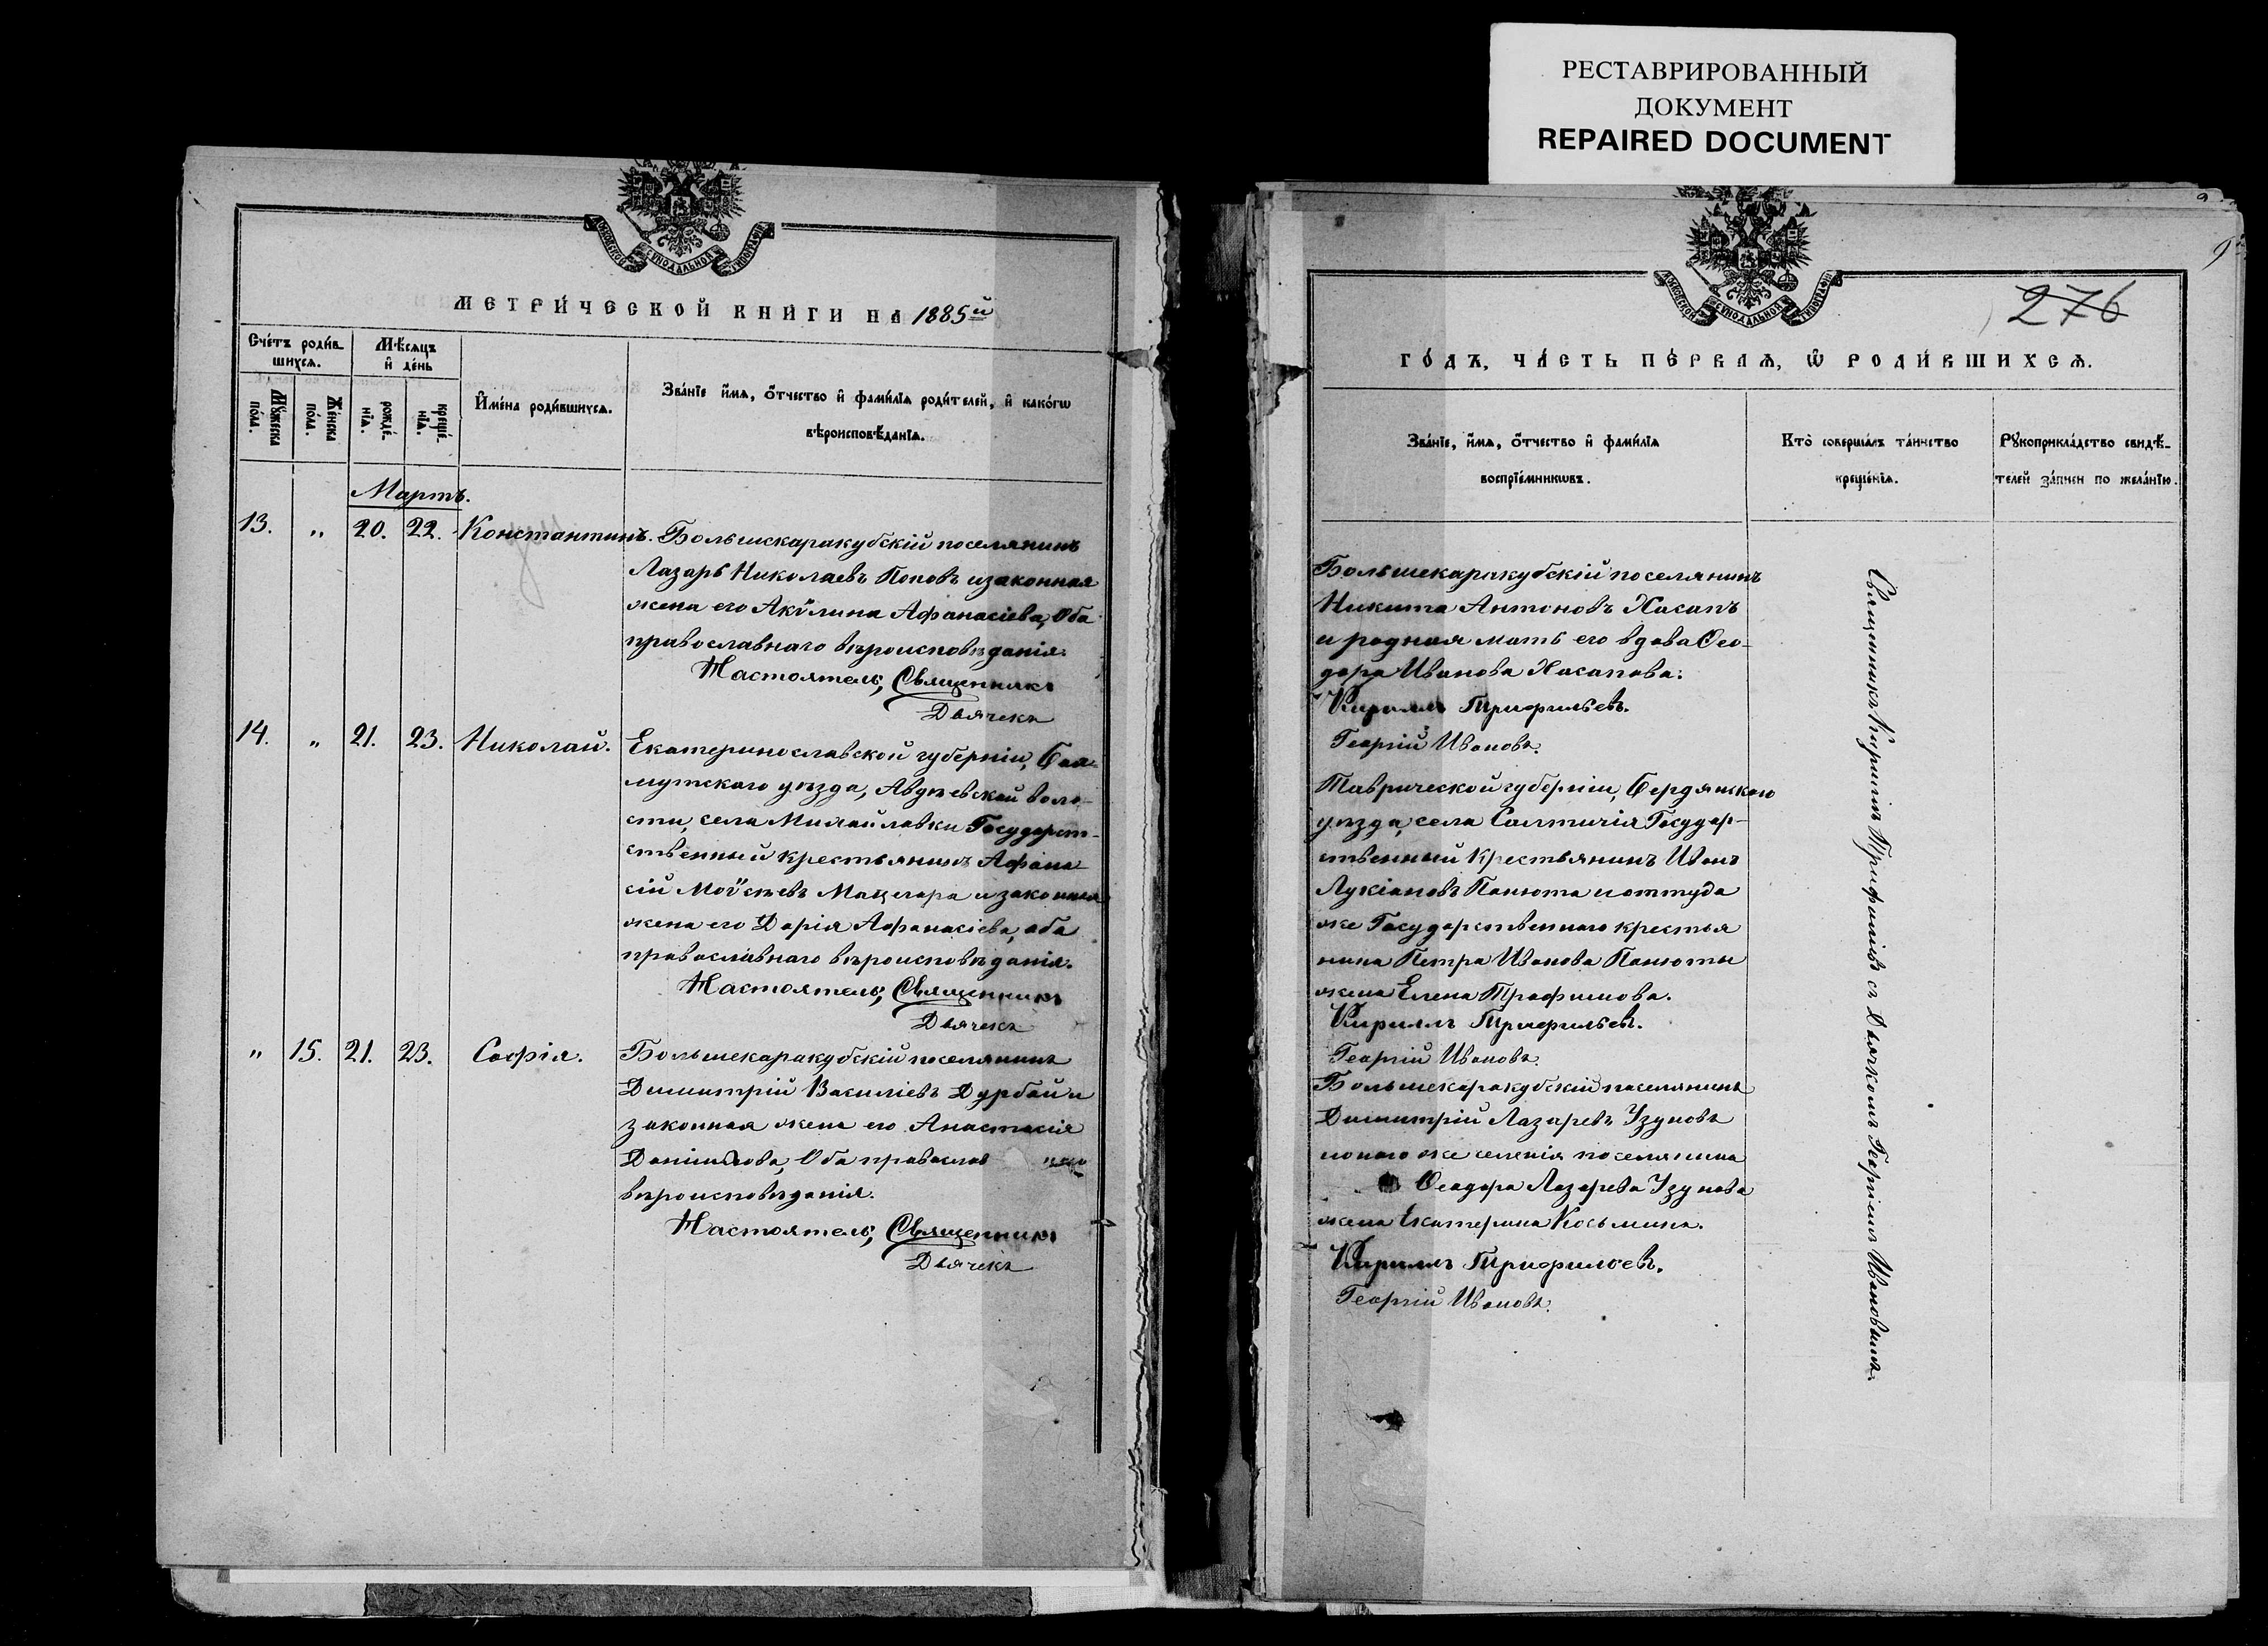 РЕСТАВРИРОВАННЫЙ
ДОКУМЕНТ
REPAIRED DOCUMENT
МОСКОВСКОЙ СѴНОДАЛЬНОЙ ТИПОГРАФІИ
МЕТРИ́ЧЕСКОЙ КНИ́ГИ НА 1885й
Сче́тъ роди́в-
шихся.
Мѣ́сяцъ
и҆ де́нь
Мꙋ́жеска
по́ла.
Же́нска
по́ла.
рожде́-
нїѧ.
креще́-
нїѧ.
И҆мена̀ роди́вшихсѧ.
Зва́нїе и҆́мѧ, ѻ҆́тчество и҆ фами́лїѧ роди́телей, и҆ како́гѡ
вѣроисповѣ́данїѧ.
Мартъ.
13. " 20. 22. Константинъ.
Большекаракубскій поселянинъ
Лазарь Николаевъ Поповъ и законная
жена его Акѵлина Афанасіева, Оба
православнаго вѣроисповѣданія.
Настоятель, Священникъ
Дьячекъ
14. " 21. 23. Николай.
Екатеринославской губерніи, Бах-
мутскаго уѣзда, Авдѣевской воло-
сти, села Михайловки Государст-
ственный крестьянинъ Афана
сій Моѵсѣевъ Мацегора и законная
жена его Дарія Афанасіева, оба
православнаго вѣроисповѣданія.
Настоятель, Священникъ
Дьячекъ
" 15. 21. 23. Софія.
Большекаракубскій поселянинъ
Димитрій Василіевъ Дурбай и
законная жена его Анастасія
Даніилова, Оба православ наго
вѣроисповѣданія.
Настоятель, Священникъ
Дьячекъ
9
276
МОСКОВСКОЙ СѴНОДАЛЬНОЙ ТИПОГРАФІИ
ГО́ДЪ, ЧА́СТЬ ПЕ́РВАѦ, Ѡ҆ РОДИ́ВШИХСѦ.
Зва́нїе, и҆́мѧ, ѻ҆́тчество и҆ фами́лїѧ
воспрїе́мникѡвъ.
Кто̀ соверша́лъ та́инство
креще́нїѧ.
Рꙋкоприкла́дство свидѣ́-
телей за́писи по жела́нїю.
Большекаракубскій поселянинъ
Никита Антоновъ Хасапъ
и родная мать его вдова Ѳео-
дора Иванова Хасапова.
Кириллъ Трифильевъ.
Георгій Ивановъ.
Таврической губерніи, Бердянскаго
уѣзда, села Салтичія Государ-
ственный крестьянинъ Иванъ
Лукіановъ Панюта и оттуда
же Государственнаго крестья
нина Петра Иванова Панюты
жена Елена Трофимова.
Кириллъ Трифильевъ.
Георгій Ивановъ.
Большекаракубскій поселянинъ
Димитрій Лазаревъ Узуновъ
и онаго же селенія поселянина
Ѳеодора Лазарева Узунова
жена Екатерина Косьмина.
Кириллъ Трифильевъ.
Георгій Ивановъ.
Священникъ Кириллъ Трифильевъ съ Дьячкомъ Георгіемъ Ивановымъ.